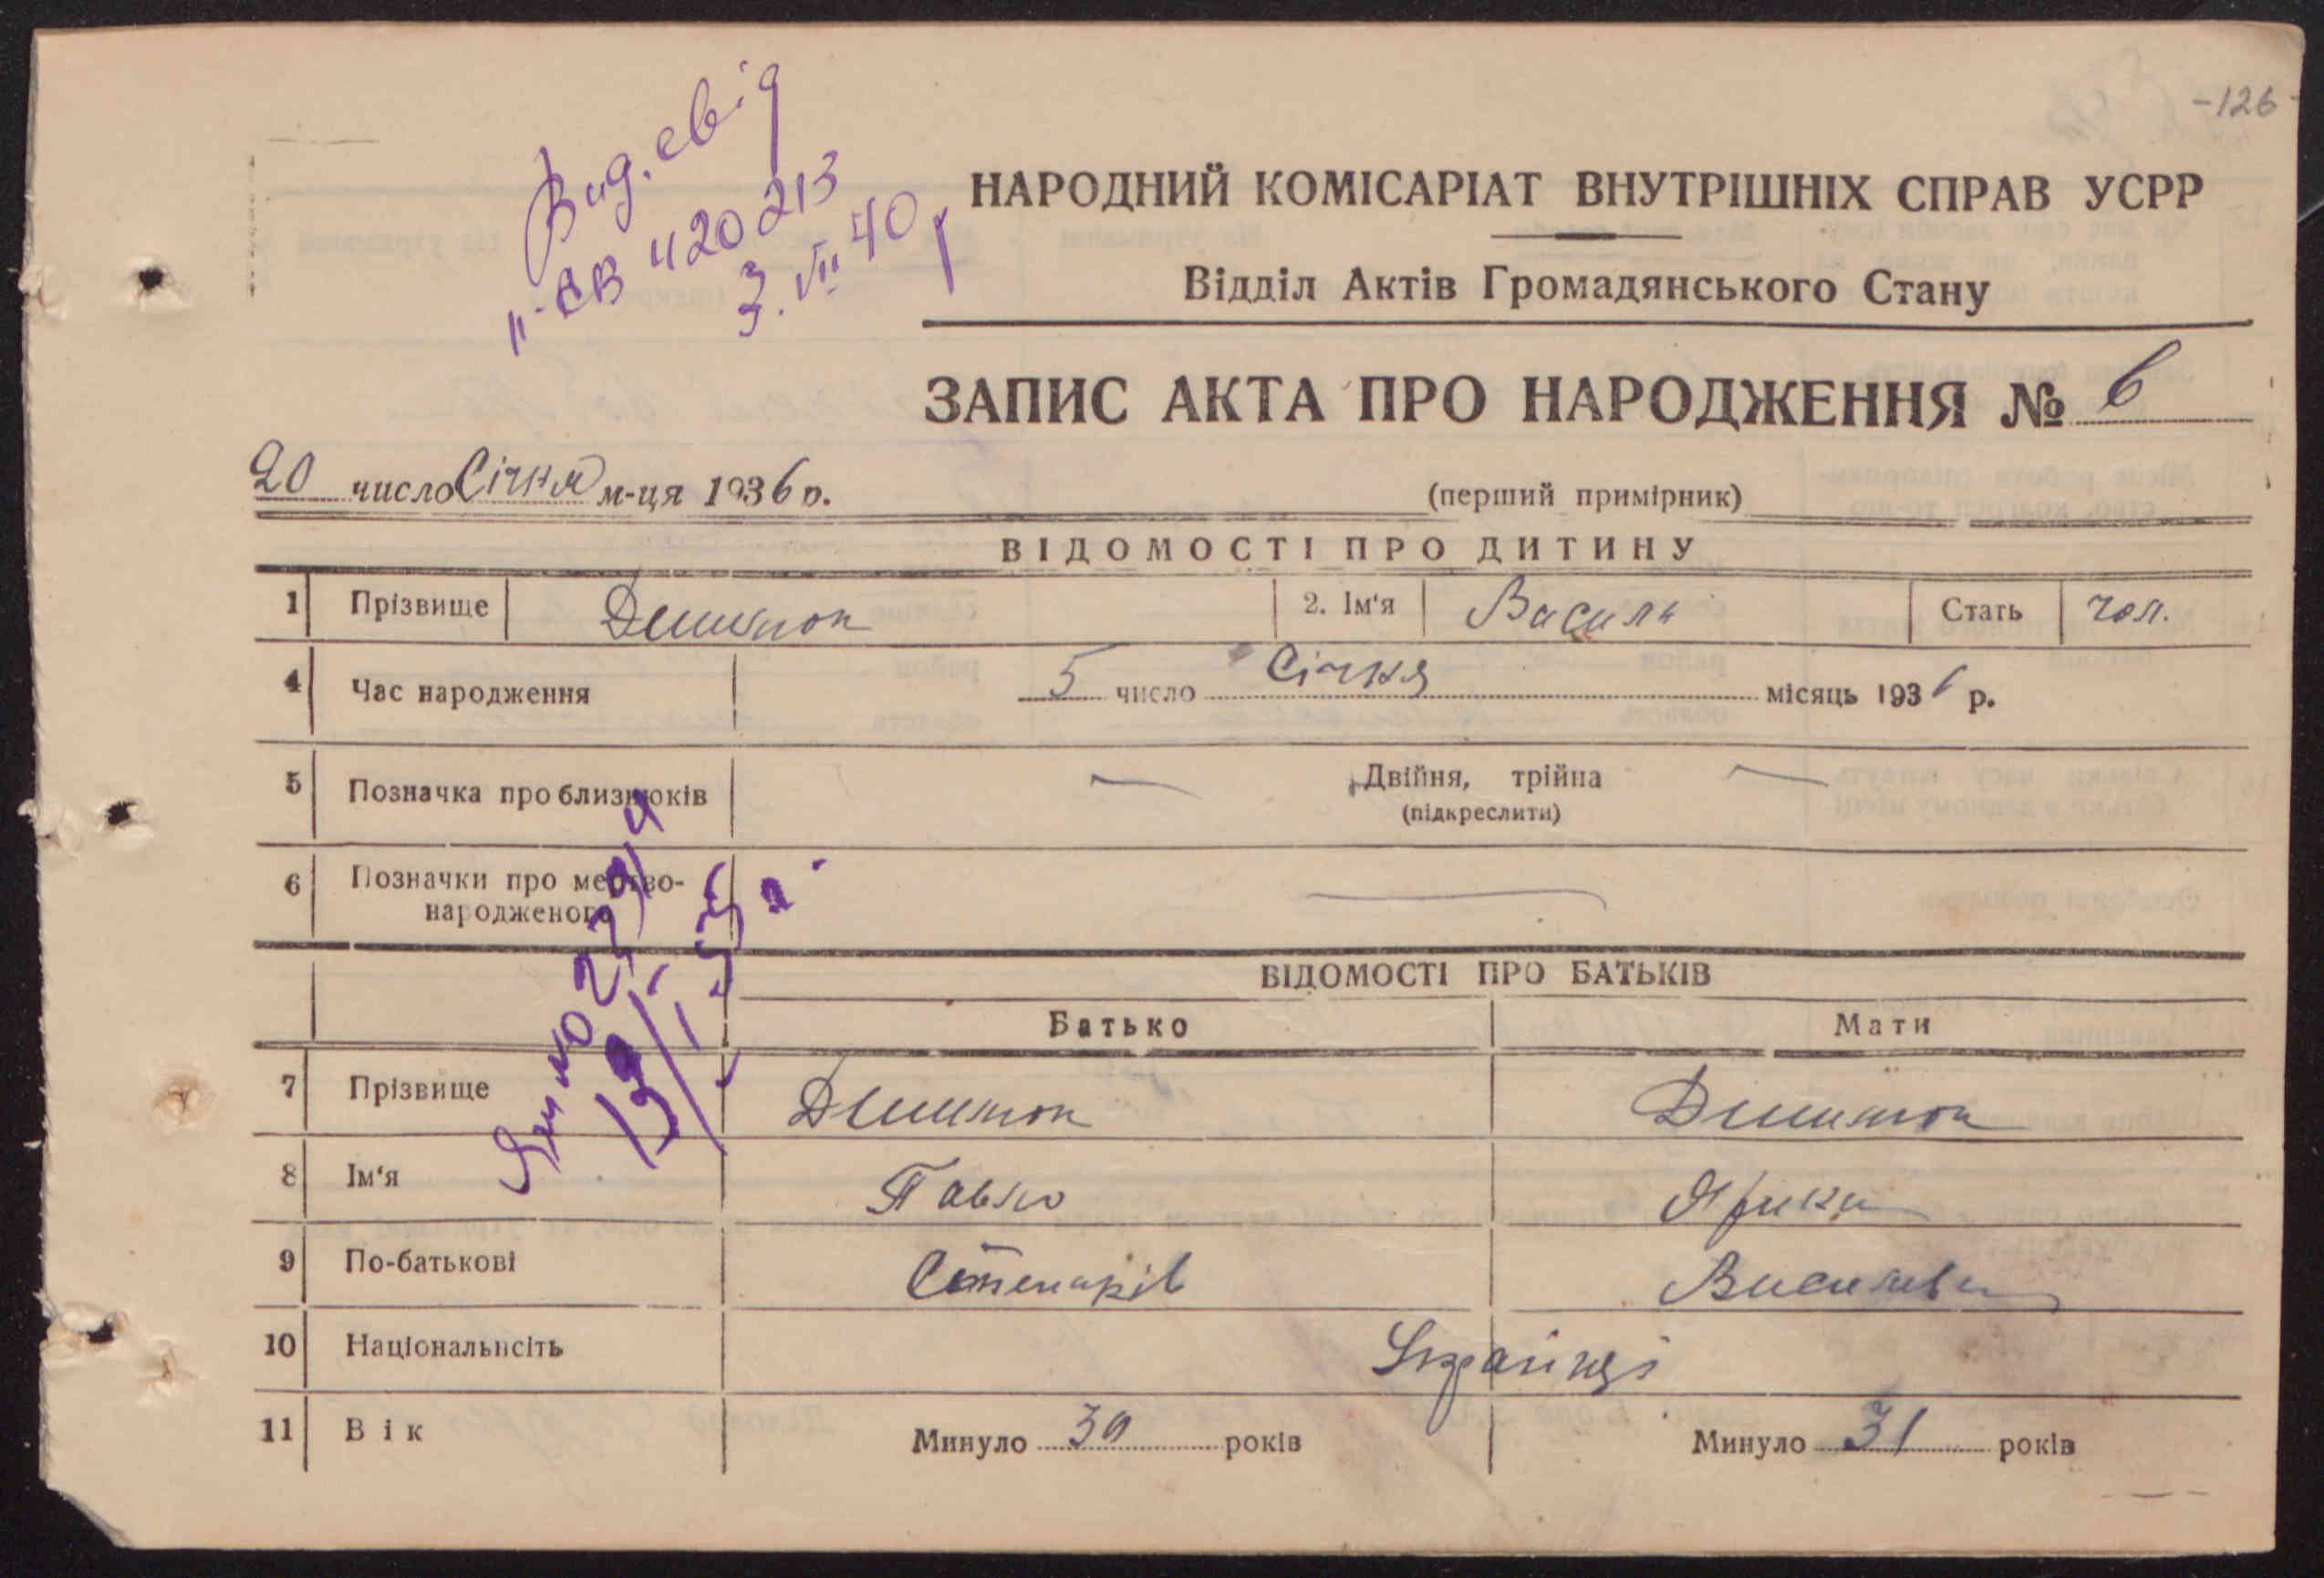 -126-
Вид. свід
"ЄВ 420213
3.VII 40р
НАРОДНИЙ КОМІСАРІАТ ВНУТРІШНІХ СПРАВ УСРР
Відділ Актів Громадянського Стану
ЗАПИС АКТА ПРО НАРОДЖЕННЯ № 6
20 число Січня м-ця 1936 р.
(перший примірник)
ВІДОМОСТІ ПРО ДИТИНУ
1 Прізвище 2. Ім'я Василь Стать чол.
4 Час народження 5 число Січня місяць 1936 р.
5 Позначка про близнюків — Двійня, трійна —
(підкреслити)
6 Позначки про мертво-
народженого —
ВІДОМОСТІ ПРО БАТЬКІВ
Батько Мати
7 Прізвище
8 Ім'я Павло
9 По-батькові
10 Національнсіть Українці
11 Вік Минуло років Минуло 31 років